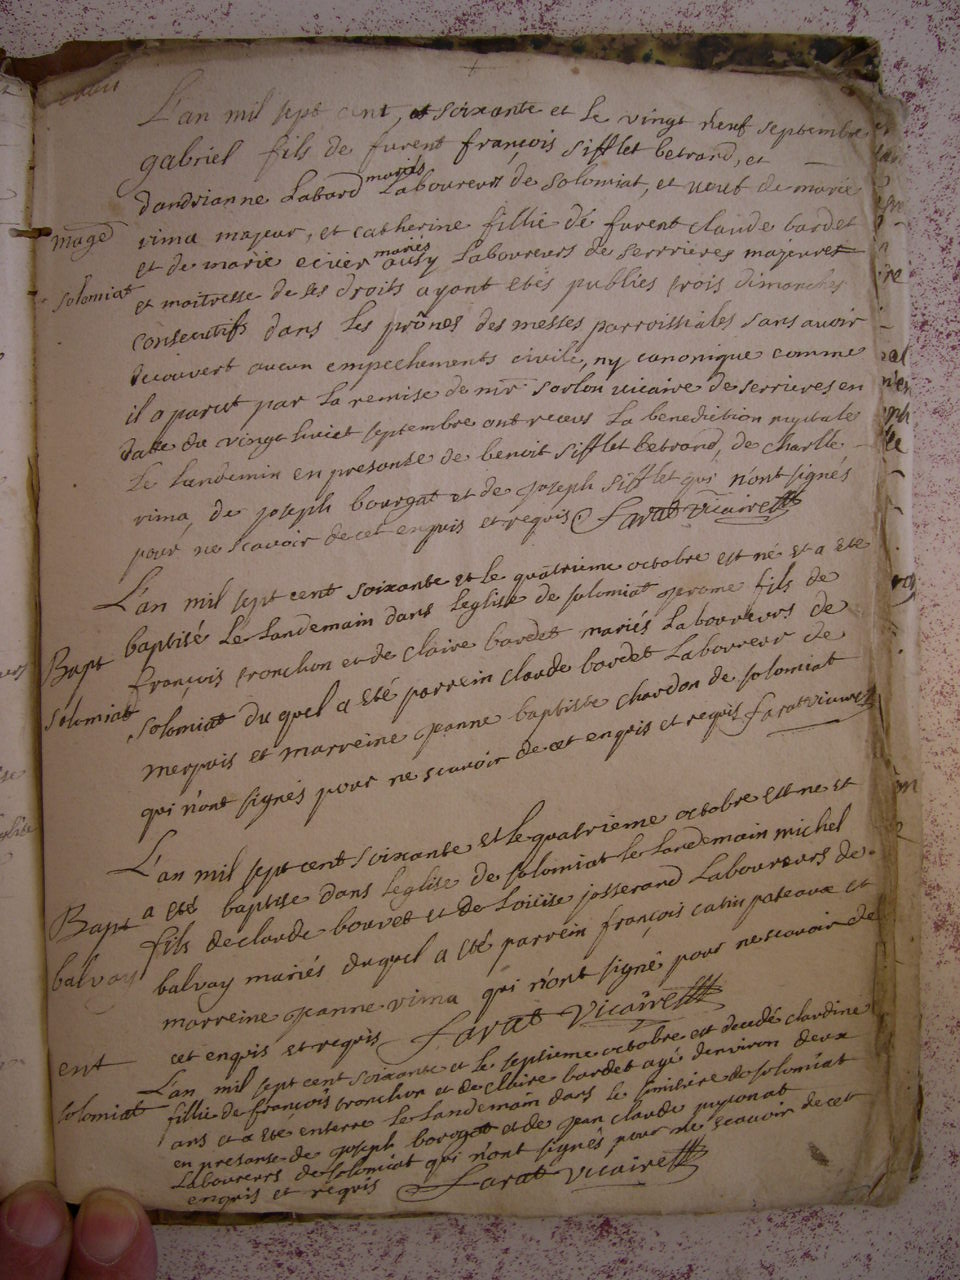 L'an mil sept cent, et soixante et le vingt neuf septembre
gabriel fils de furent françois sifflet betrand, et
dandrianne Labard mariés Laboureurs de solomiat, et veuf de marie
mage
vima majeur, et catherine fillie dé furent claude bardet
et de marie ecuier mariés ausy Laboureurs de serrieres majeure
solomiat
et maitresse de ses droits ayant etés publiés trois dimanches
consecutifs dans les prônes des messes parroissiales sans avoir
decouvert aucun empechements civile, ny canonique comme
il a parut par la remise de mr sorlon vicaire de serrieres en
date du vingt huict septembre ont receus La benediction nuptiale
Le Landemin en presanse de benoit sifflet betrand, de charlle
vima, de joseph bourgat et de joseph sifflet qui n'ont signés
pour ne scavoir de cet enquis et requis farat vicaire
L'an mil sept cent soixante et le quatrieme octobre est né et a été
Bapt
baptisé Le Landemain dans Leglise de solomiat jerome fils de
françois tronchon et de claire bardet mariés Laboureurs de
solomiat
solomiat duquel a eté parrein claude bardet Laboureur de
merpuis et marreine jeanne baptiste chardon de solomiat
qui n'ont signés pour ne scavoir de cet enquis et requis farat vicaire
L'an mil sept cent soixante et le quatrieme octobre est ne et
Bapt
a eté baptise dans Leglise de solomiat le Landemain michel
fils de claude bouvet et de Loiiise josserand Laboureurs de
balvay
balvay mariés duquel a eté parrein françois catin pateaux et
marreine jeanne vima qui n'ont signé, pour ne scavoir de
cet enquis et requis farat vicaire
ent
L'an mil sept cent soixante et le septieme octobre est decedé claudine
solomiat
fillie de françois tronchon et de claire bardet ayé denviron deux
ans et a ete enterre Le Landemain dans le simitiere de solomiat
en presanse de joseph bourgat et de jean claude puyonat
Laboureurs de solomiat qui n'ont signés pour ne scavoir de cet
enquis et requis farat vicaire